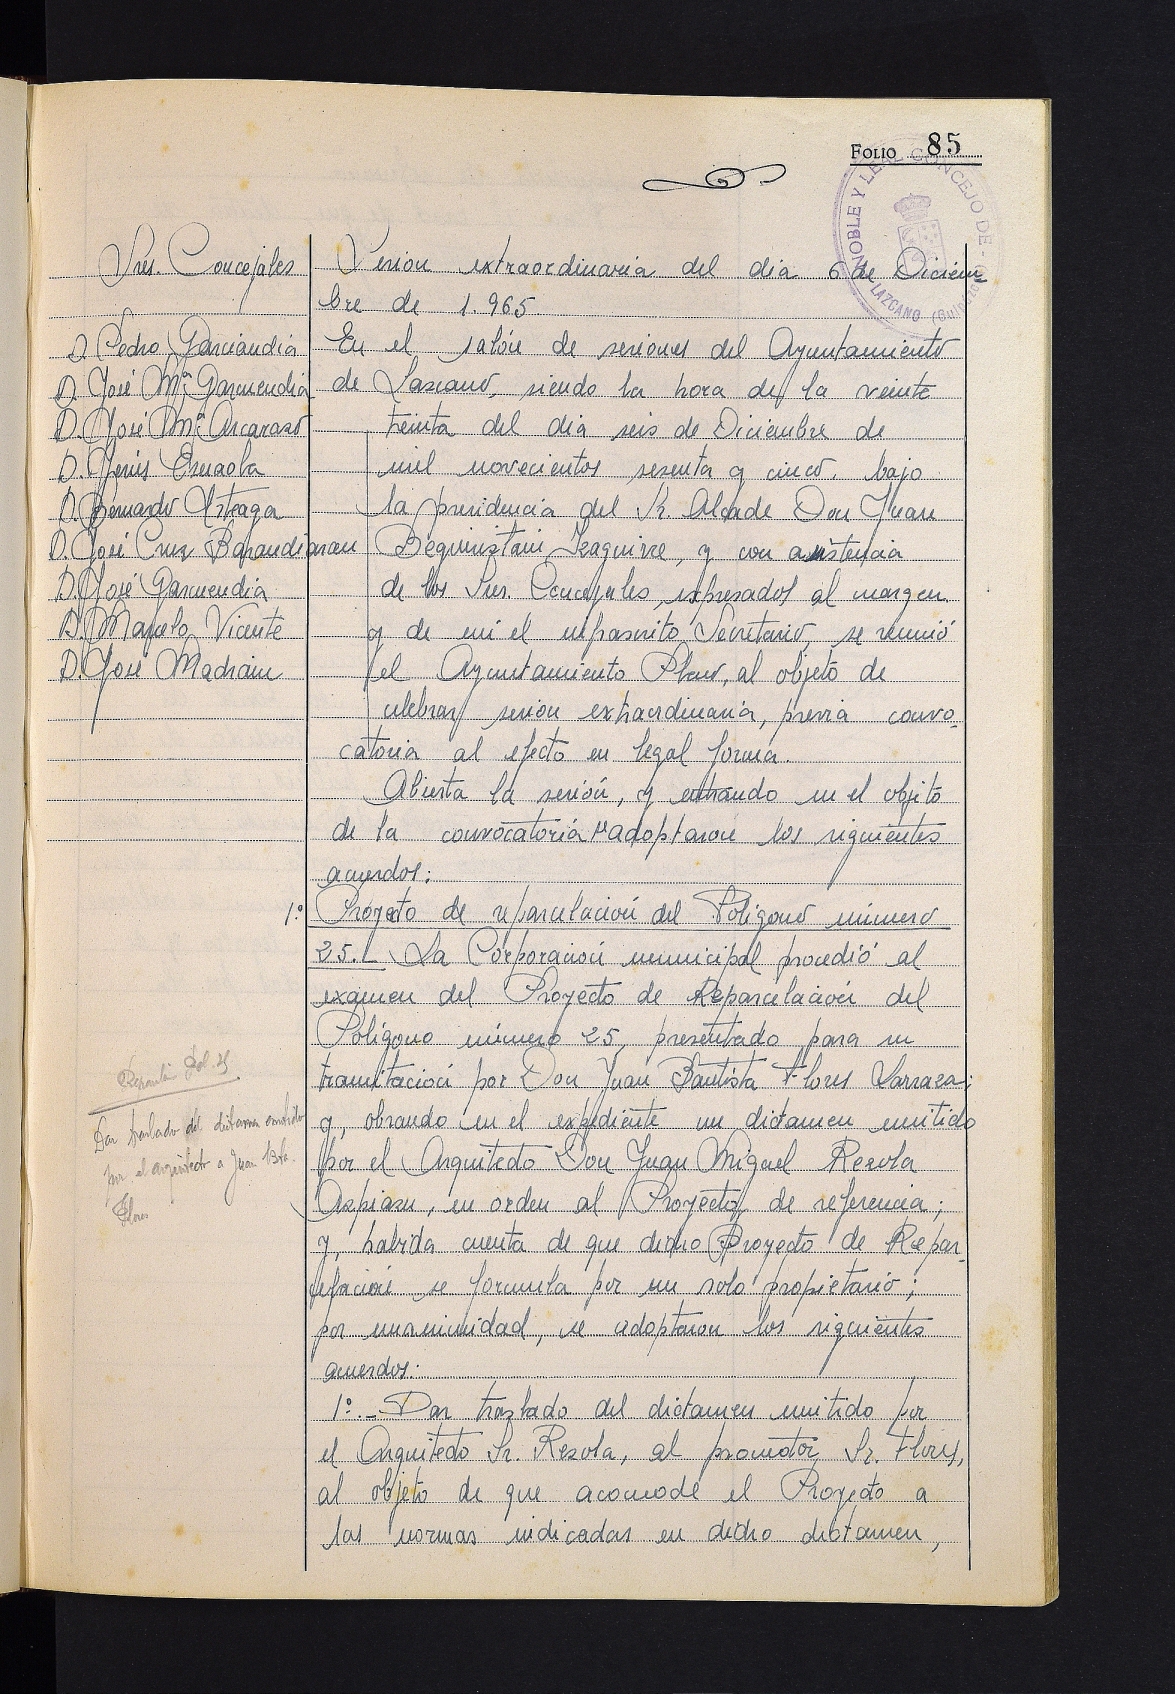 FOLIO 85
NOBLE Y LEAL CONCEJO DE LAZCANO
Sres. Concejales
D. Pedro Garciandia
D. José Mª Garmendia
D. José Mª Ascarazo
D. Jesús Esnaola
D. Bernardo Arteaga
D. José Cruz Barandiaran
D. José Garmendia
D. Marcelo Vicente
D. José Madraim
Sesion extraordinaria del dia 6 de Diciem
bre de 1.965.
En el salón de sesiones del Ayuntamiento
de Lazcano, siendo la hora de la veinte
treinta del dia seis de Diciembre de
mil novecientos sesenta y cinco, bajo
la presidencia del Sr. Alcalde Don Juan
Beguiristain Izaguirre, y con asistencia
de los Sres. Concejales, expresados al margen
y de mi el infrascrito Secretario, se reunió
el Ayuntamiento Pleno, al objeto de
celebrar sesion extraordinaria, previa convo-
catoria al efecto en legal forma.
Abierta la sesión, y entrando en el objeto
de la convocatoria se adoptaron los siguientes
acuerdos:
1º Proyecto de reparcelación del Polígono número
25.- La Corporación municipal procedió al
examen del Proyecto de Reparcelación del
Polígono número 25, presentado para su
tramitación por Don Juan Bautista Flores Larraza;
y, obrando en el expediente un dictamen emitido
por el Arquitecto Don Juan Miguel Rezola
Azpiazu, en orden al Proyecto, de referencia;
y, habida cuenta de que dicho Proyecto de Repar-
celación se formula por un solo propietario;
por unanimidad, se adoptaron los siguientes
acuerdos:
1º.- Dar traslado del dictamen emitido por
el Arquitecto Sr. Rezola, al promotor, Sr. Flores,
al objeto de que acomode el Proyecto a
las normas indicadas en dicho dictamen,
Pol. 25
Dar traslado del dictamen emitido
por el arquitecto a Juan Bta.
Flores